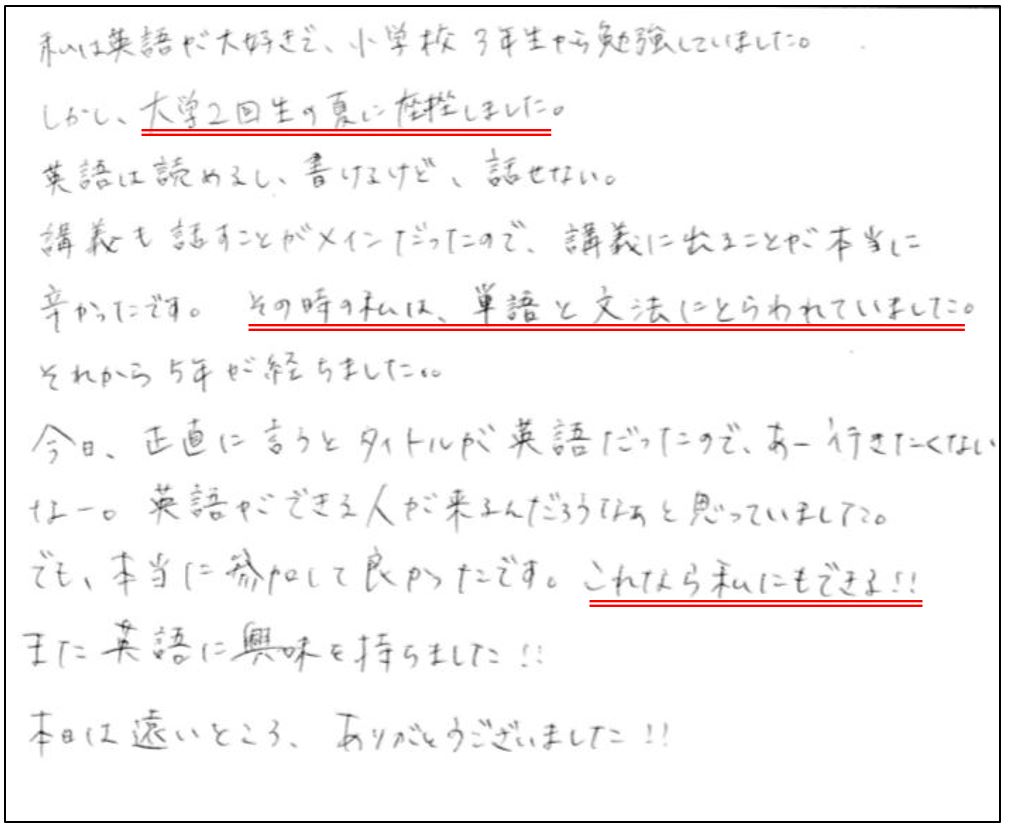 私は英語が大好きで、小学校3年生から勉強していました。
しかし、大学2回生の夏に挫折しました。
英語は読めるし、書けるけど、話せない。
講義も話すことがメインだったので、講義に出ることが本当に
辛かったです。 その時の私は、単語と文法にとらわれていました。
それから5年が経ちました。。
今日、正直に言うとタイトルが英語だったので、あー行きたくない
なー。英語ができる人が来るんだろうなぁと思っていました。
でも、本当に参加して良かったです。これなら私にもできる!!
また英語に興味を持ちました!!
本日は遠いところ、ありがとうございました!!